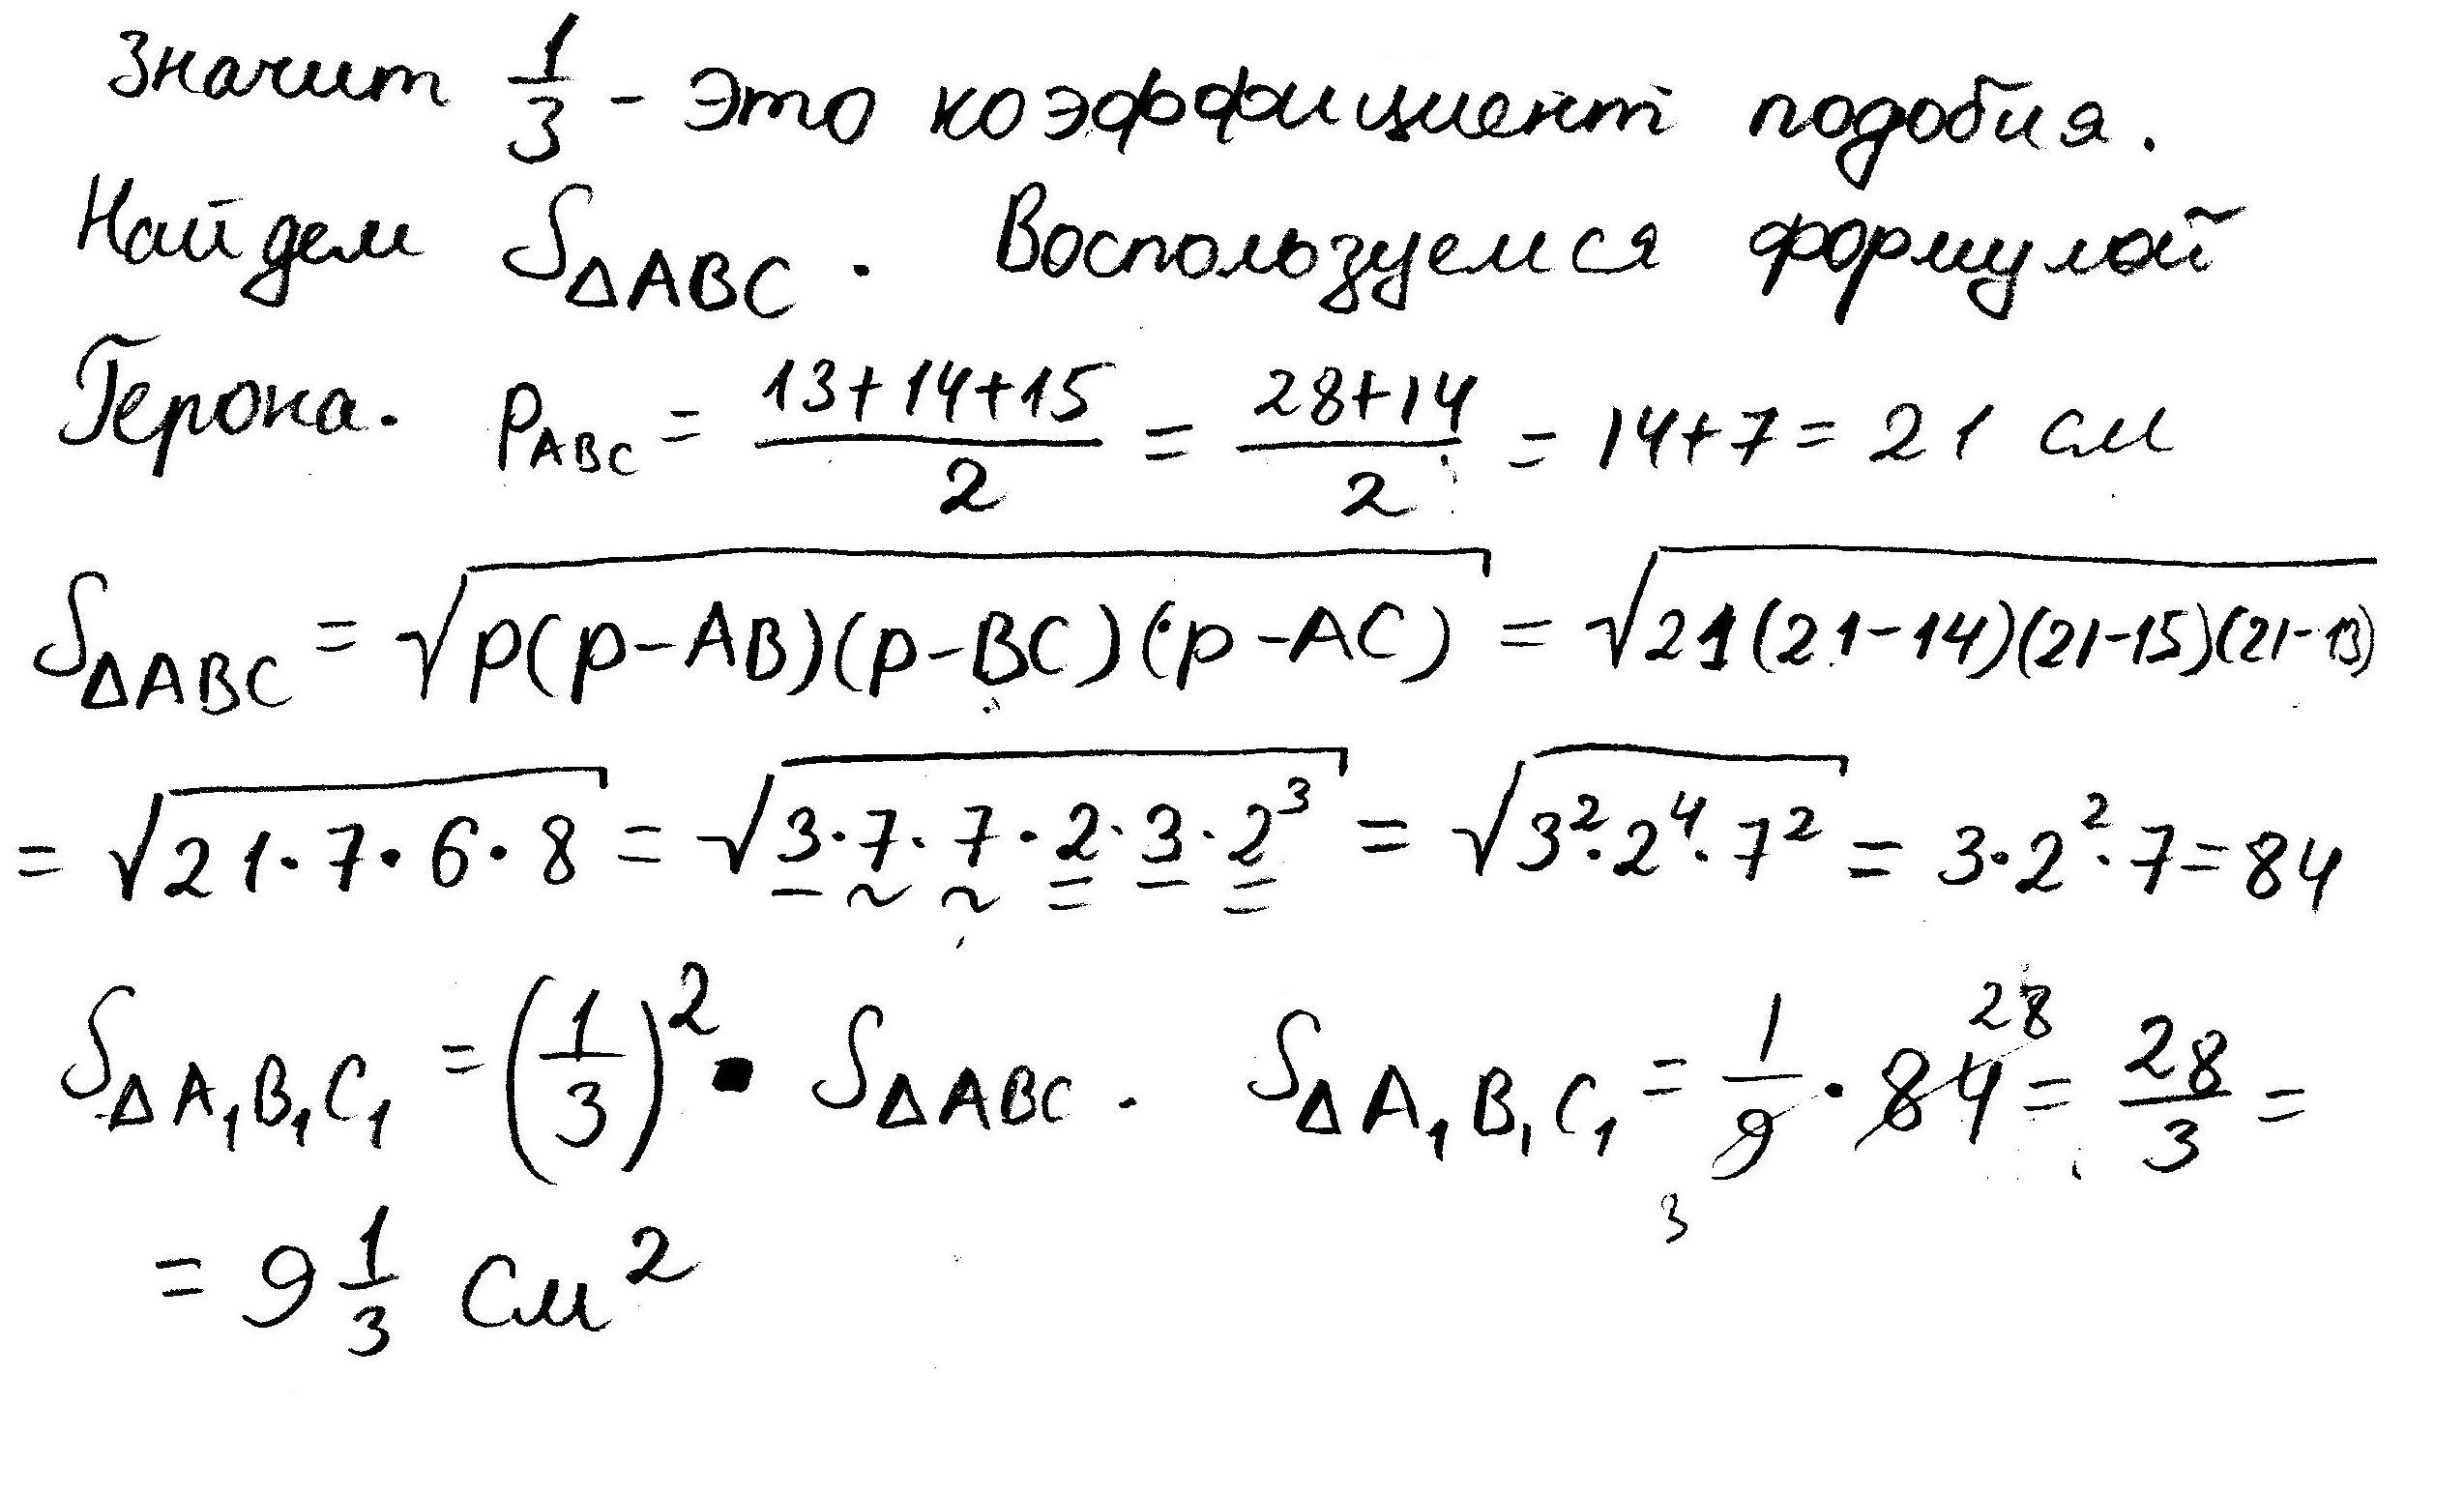 Значит 1/3 - это коэффициент подобия.
Найдем S△ABC. Воспользуемся формулой
Герона. p_ABC = (13+14+15)/2 = (28+14)/2 = 14+7 = 21 см
S△ABC = √(p(p-AB)(p-BC)(p-AC)) = √(21(21-14)(21-15)(21-13))
= √(21·7·6·8) = √(3·7·7·2·3·2³) = √(3²·2⁴·7²) = 3·2²·7=84
S△A₁B₁C₁ = (1/3)² · S△ABC. S△A₁B₁C₁ = 1/9 3 · 84 28 = 28/3 =
= 9 1/3 см²